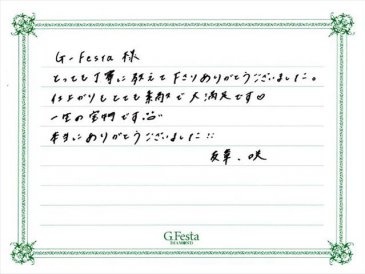 G-Festa 様
とっても丁寧に教えて下さりありがとうございました。
仕上がりもとても素敵で大満足です♡
一生の宝物です
本当にありがとうございました!!
友華、咲
G.Festa
DIAMOND